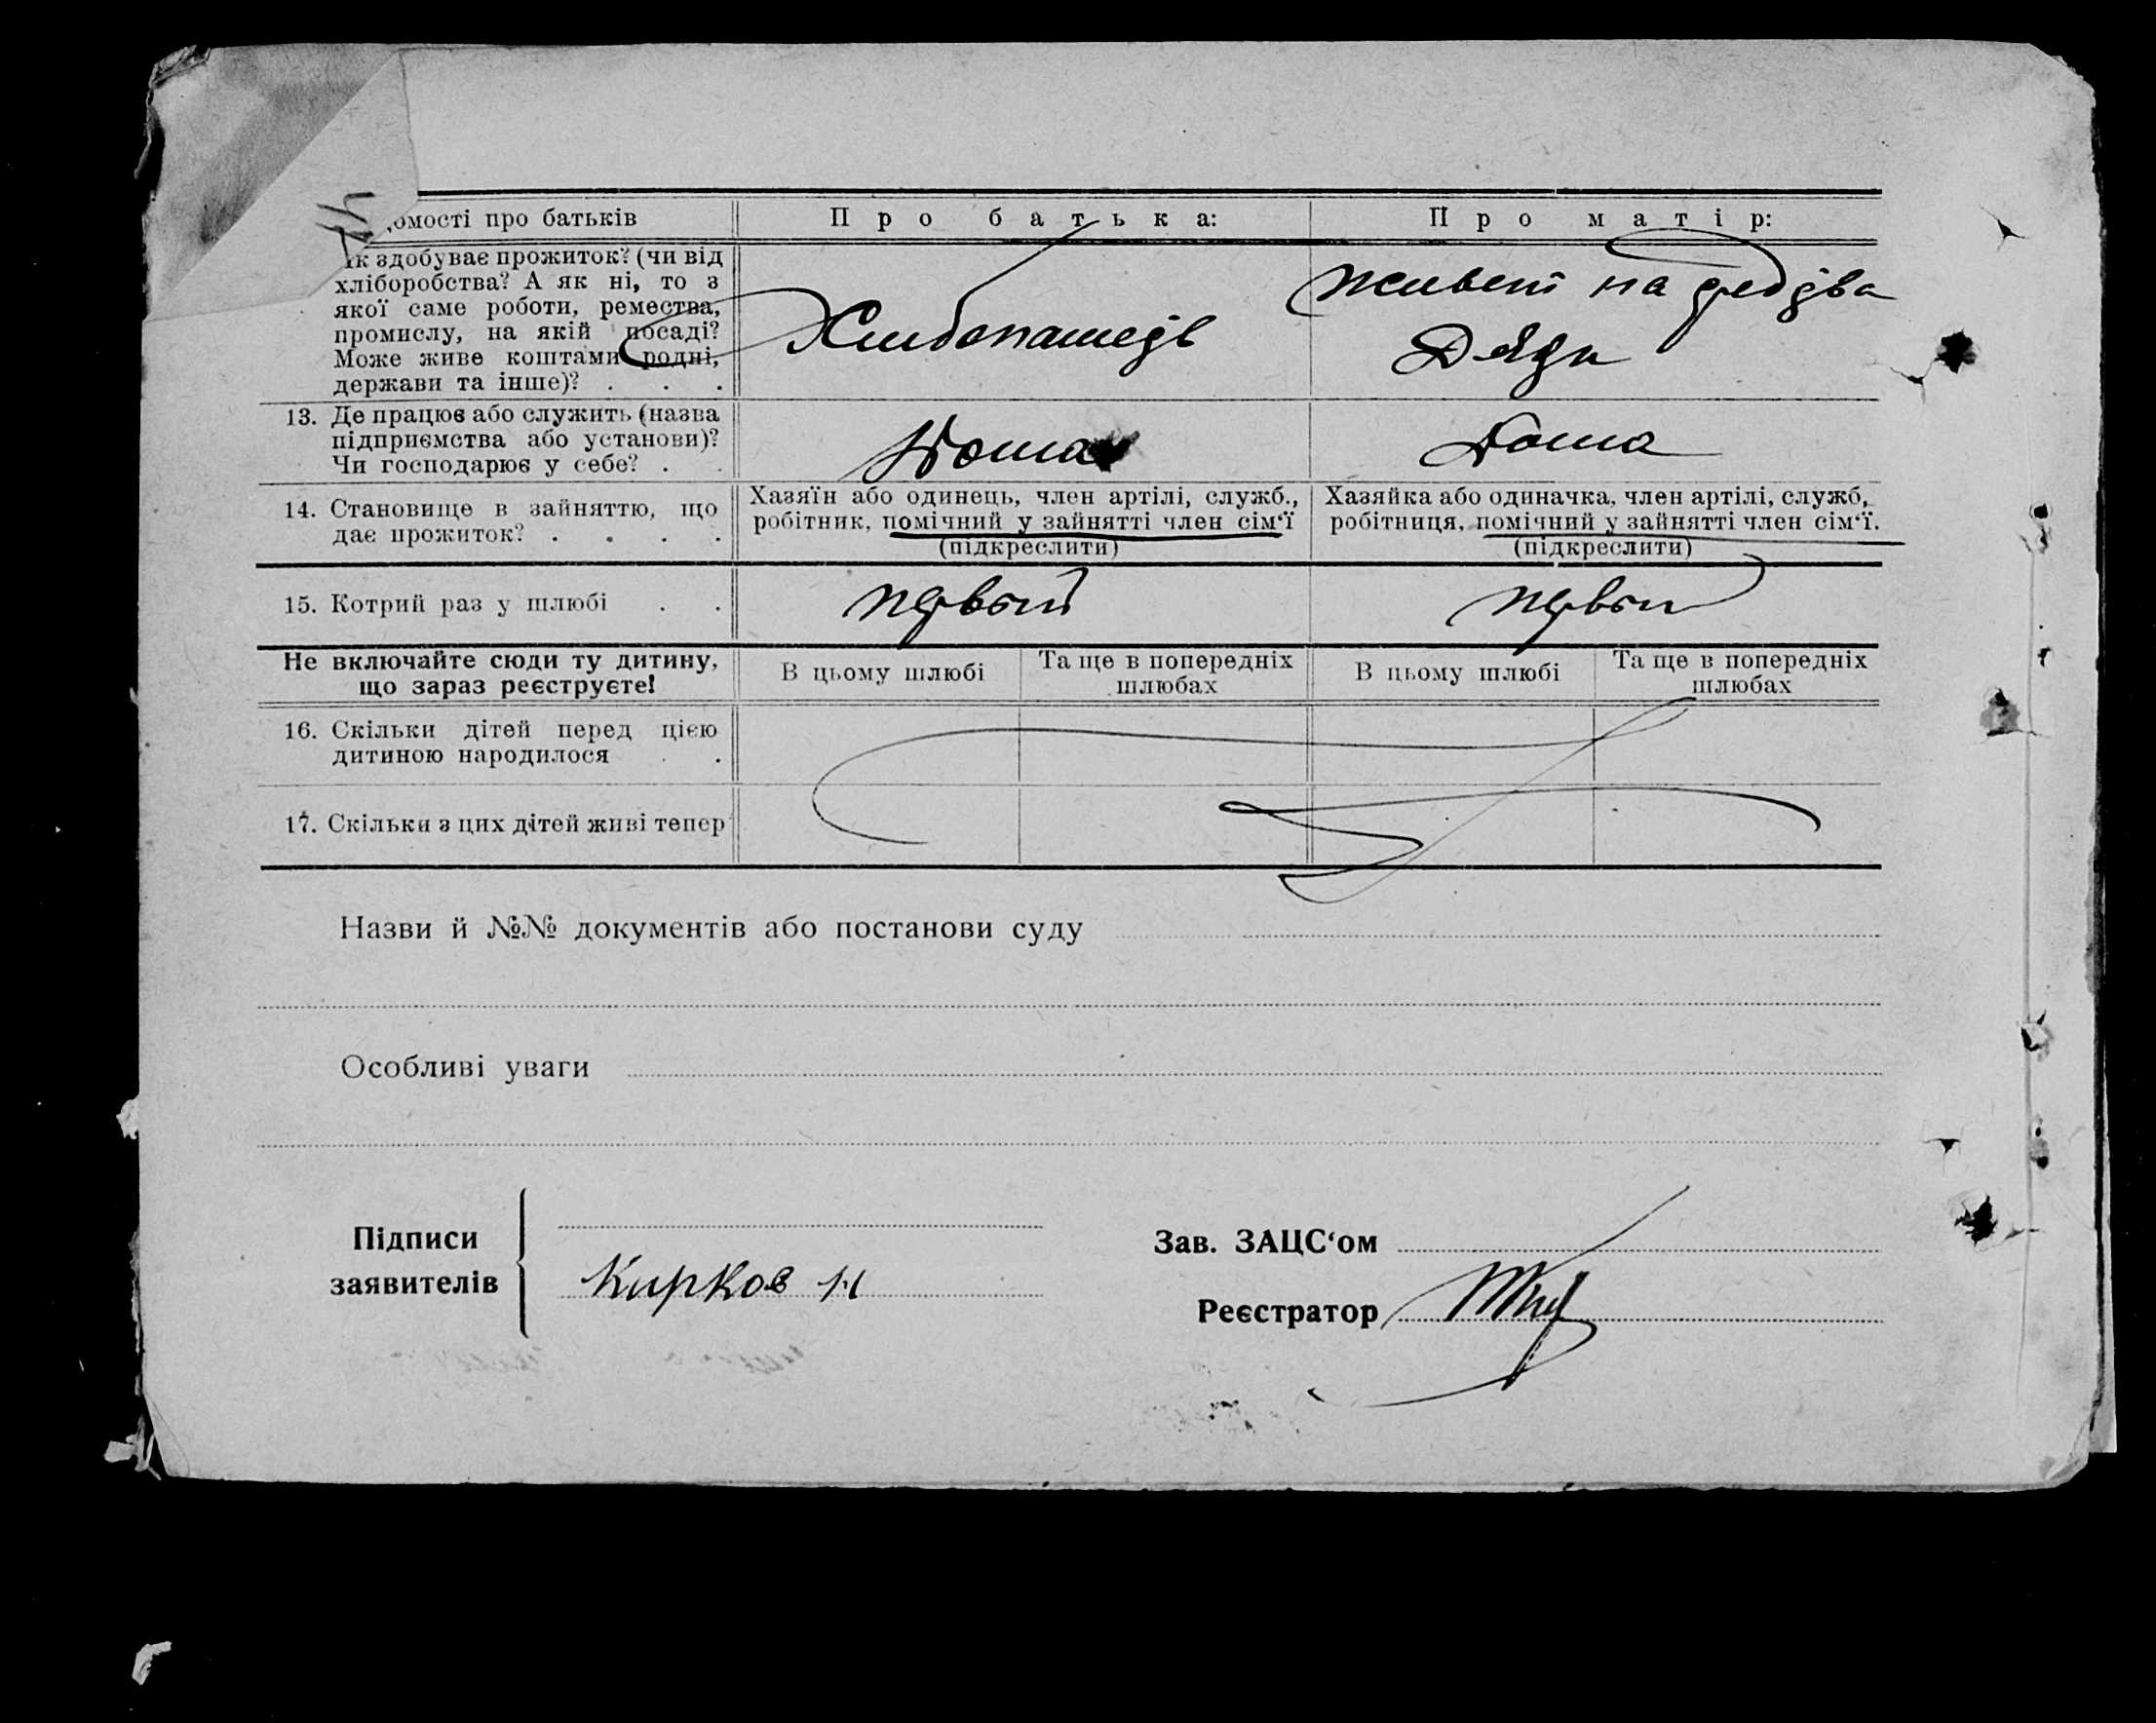 омості про батьків
Про батька:
Про матір:
Як здобуває прожиток? (чи від
хліборобства? А як ні, то з
якої саме роботи, ремества,
промислу, на якій посаді?
Може живе коштами родні,
держави та інше)? . . .
живет на
13. Де працює або служить (назва
підприємства або установи)?
Чи господарює у себе? . .
Дома
Дома
14. Становище в зайняттю, що
дає прожиток? . . . .
Хазяїн або одинець, член артілі, служб.,
робітник, помічний у зайнятті член сім‘ї
(підкреслити)
Хазяйка або одиначка, член артілі, служб,
робітниця, помічний у зайнятті член сім‘ї.
(підкреслити)
15. Котрий раз у шлюбі . .
первый
первый
Не включайте сюди ту дитину,
що зараз реєструєте!
В цьому шлюбі
Та ще в попередніх
шлюбах
В цьому шлюбі
Та ще в попередніх
шлюбах
16. Скільки дітей перед цією
дитиною народилося . .
17. Скільки з цих дітей живі тепер
Назви й №№ документів або постанови суду
Особливі уваги
Підписи
заявителів
Кирков Н
Зав. ЗАЦС‘ом
Реєстратор